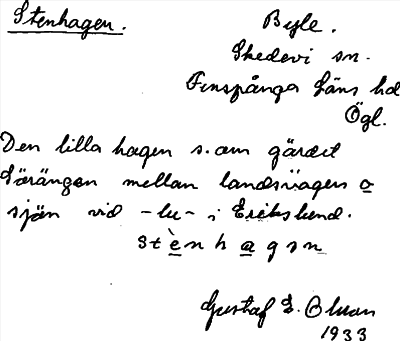 Stenhagen.
Byle.
Skedevi sn.
Finspånga läns hd
Ögl.
Den lilla hagen s.om gärdet
Lörängen mellan landsvägen o
sjön vid -lu- i Erikslund.
stènhagən
Gustaf E. Oman
1933